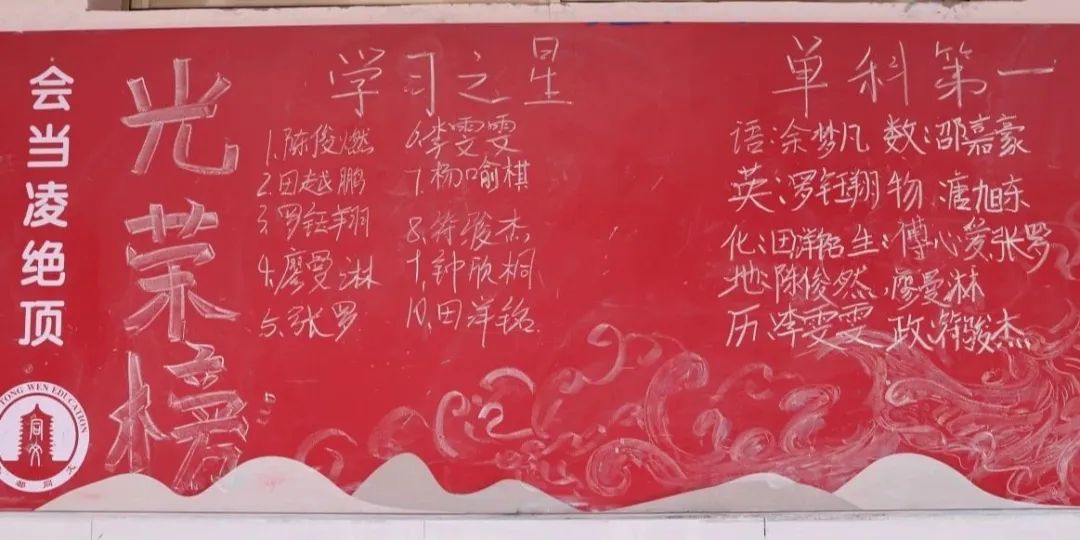 会当凌绝顶
光荣榜
学习之星
1.陈俊燃
2.田越鹏
3.罗钰翔
4.廖曼淋
5.张罗
6.李雯雯
7.杨喻棋
8.符骏杰
9.钟欣桐
10.田洋铭
单科第一
语:余梦凡 数:邵嘉豪
英:罗钰翔 物:唐旭东
化:田洋铭 生:傅心爱,张罗
地:陈俊然,廖曼淋
历:李雯雯 政:符骏杰
TONG WEN EDUCATION